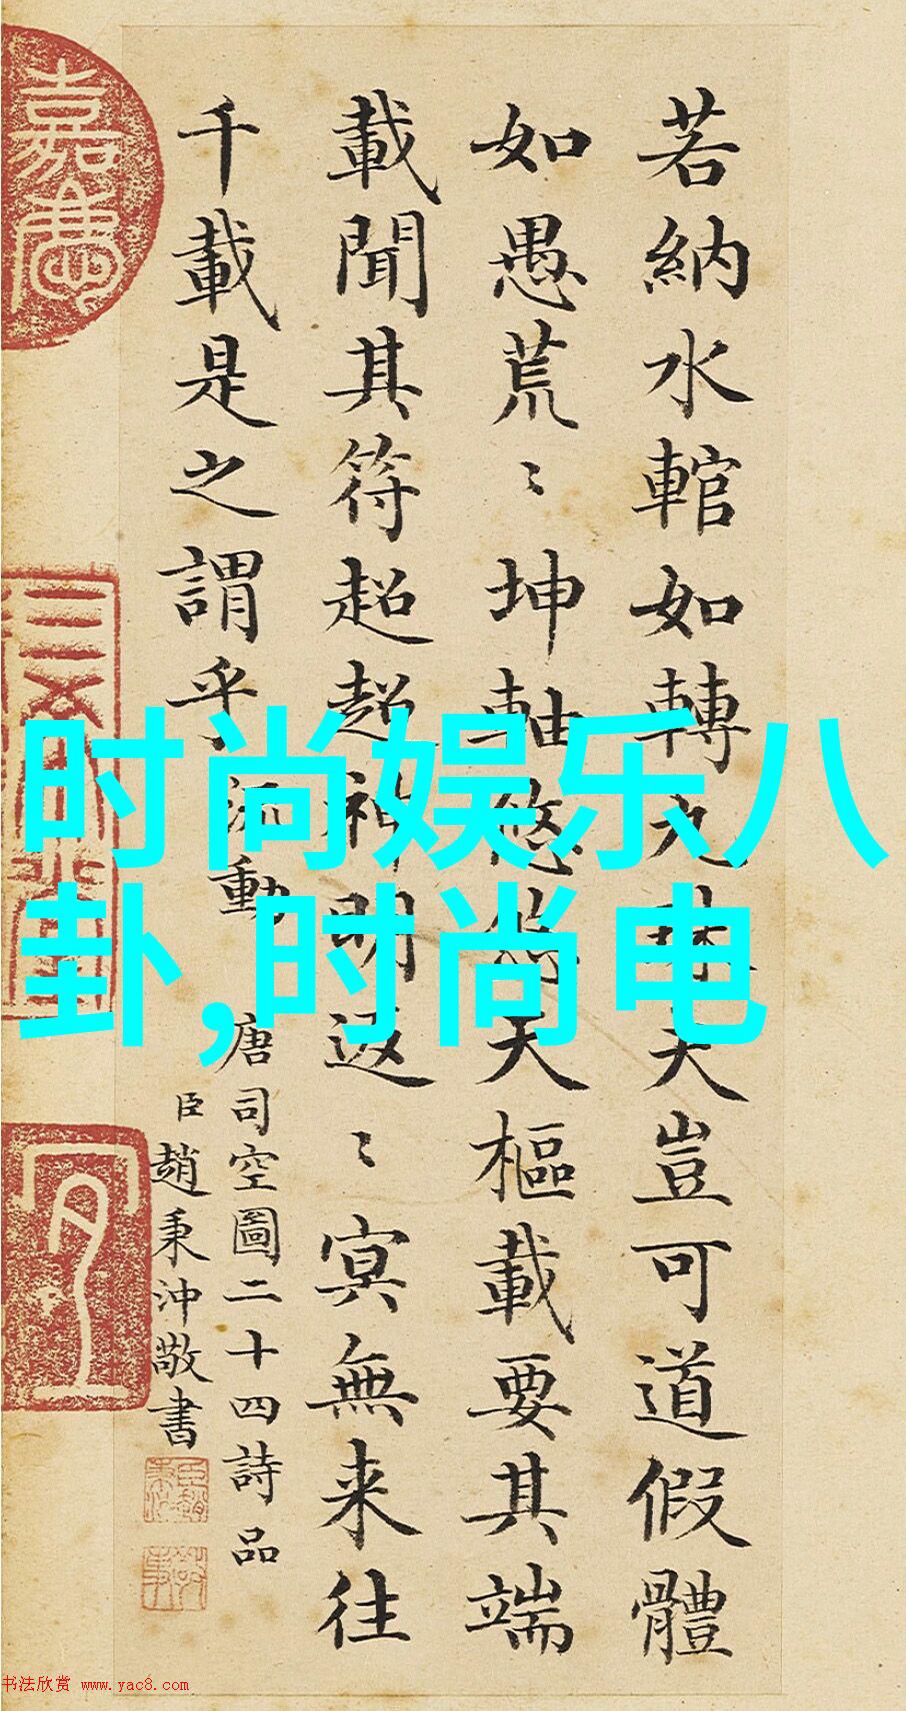 若納水輨如轉丸珠夫豈可道假體
如愚荒〻坤軸悠悠天樞載要其端
載聞其符超超神明返〻冥無来往
千載是之謂乎 流動
唐司空圖二十四詩品
臣趙秉沖敬書
嘉慶
时尚娱乐八
卦,时尚电
书法欣赏 www.yac8.com